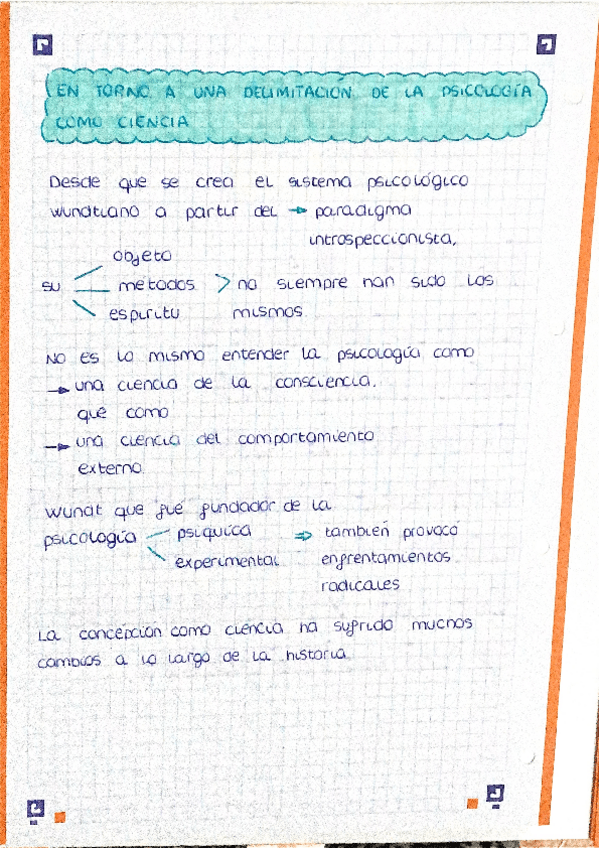 EN TORNO A UNA DELIMITACIÓN DE LA PSICOLOGÍA
COMO CIENCIA
Desde que se crea el sistema psicológico
wundtiano a partir del → paradigma
introspeccionista,
objeto
su métodos > no siempre han sido los
espíritu mismos
No es lo mismo entender la psicología como
→ una ciencia de la consciencia.
que como
→ una ciencia del comportamiento
externo.
Wundt que fué fundador de la
psicología psíquica ⇒ también provocó
experimental enfrentamientos
radicales
La concepción como ciencia ha sufrido muchos
cambios a lo largo de la historia